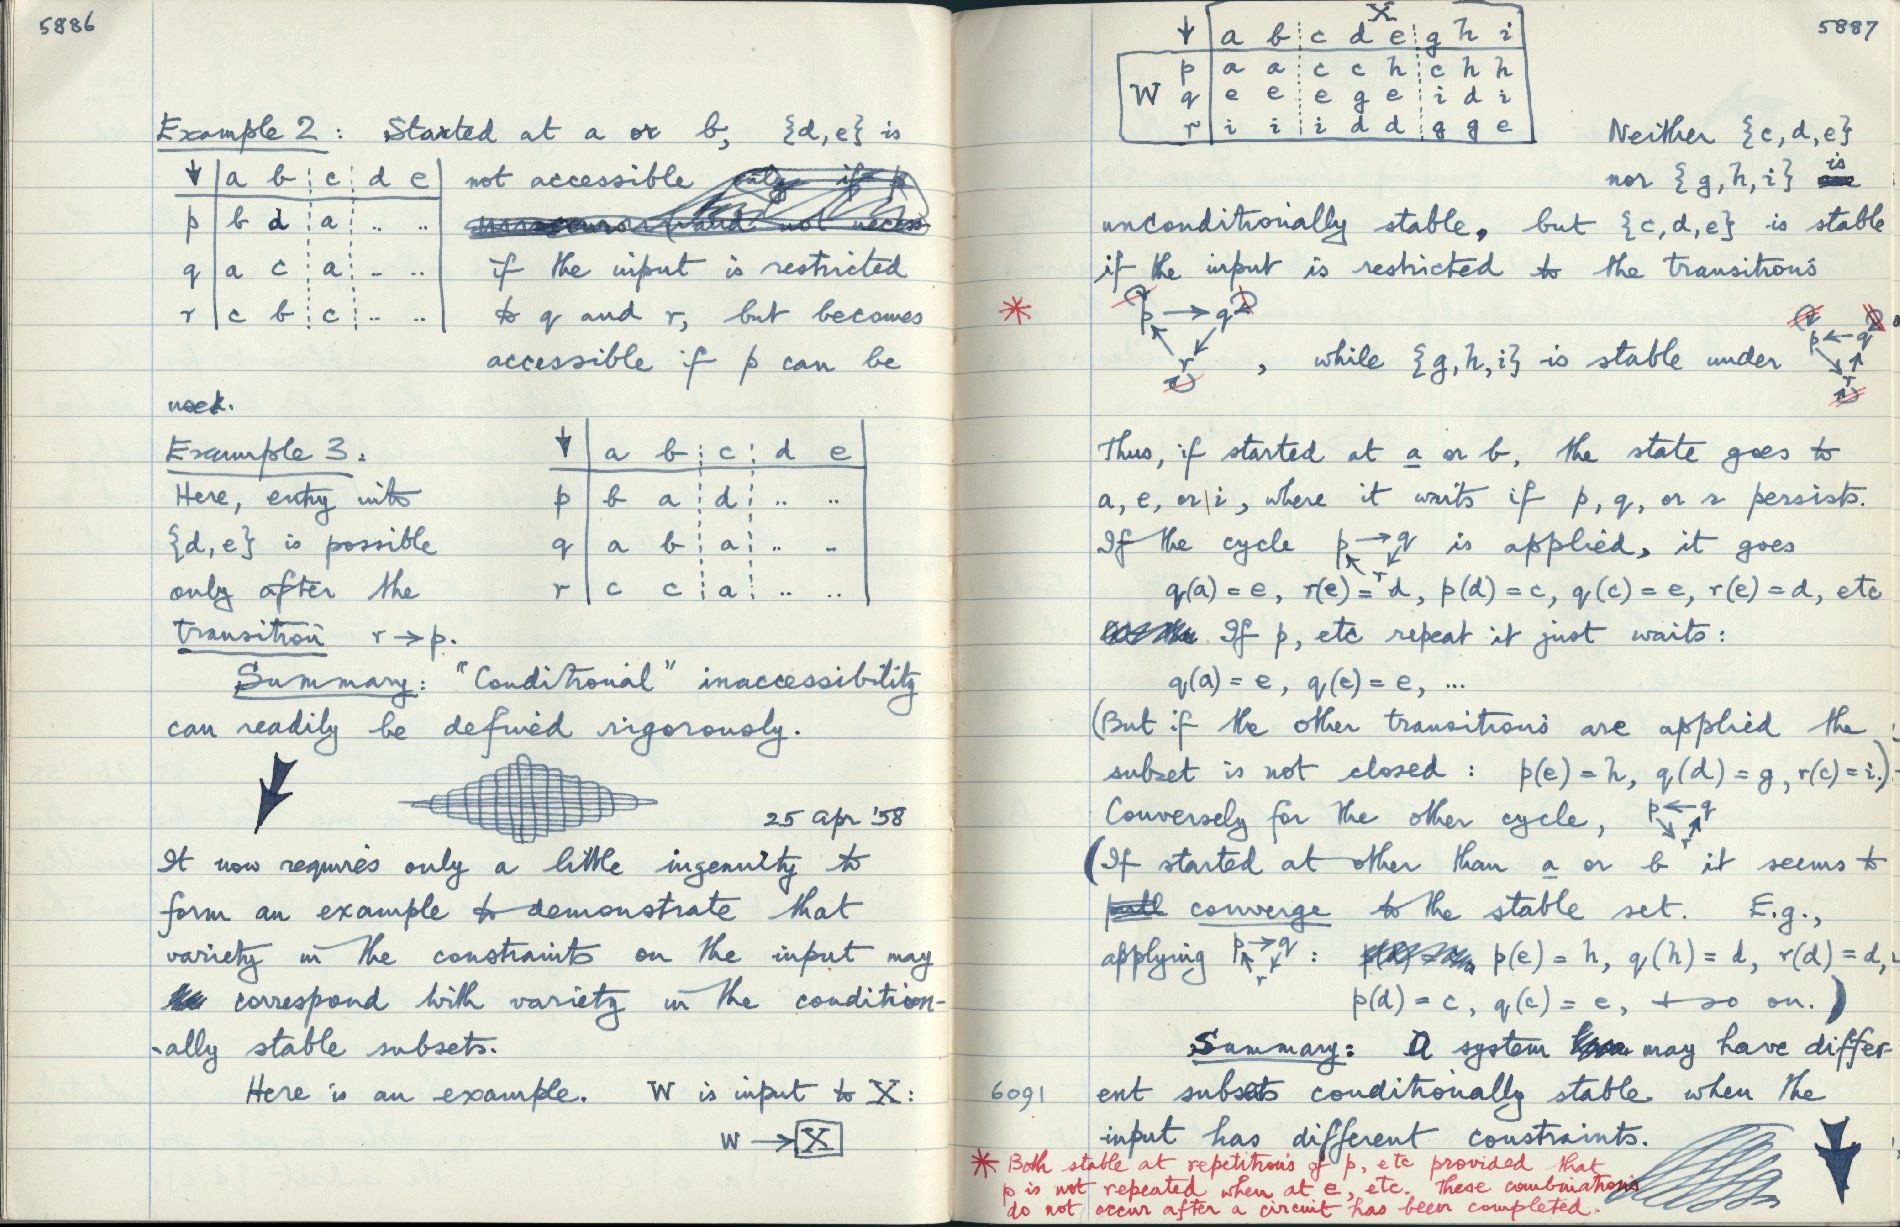 5886
Example 2: Started at a or b, {d,e} is
↓ a b c d e not accessible only if p
p b d a .. ..
q a c a .. .. if the input is restricted
r c b c .. .. to q and r, but becomes
accessible if p can be
used.
Example 3. ↓ a b c d e
Here, entry into p b a d .. ..
{d,e} is possible q a b a .. ..
only after the r c c a .. ..
transition r → p.
Summary: "Conditional" inaccessibility
can readily be defined rigorously.
25 Apr '58
It now requires only a little ingenuity to
form an example to demonstrate that
variety in the constraints on the input may
correspond with variety in the condition-
-ally stable subsets.
Here is an example. W is input to X:
W → X
5887
X
↓ a b c d e g h i
p a a c c h c h h
W q e e e g e i d i
r i i i d d g g e
Neither {c,d,e}
nor {g,h,i} is
unconditionally stable, but {c,d,e} is stable
if the input is restricted to the transitions
* p → q
r , while {g,h,i} is stable under p ← q
r
Thus, if started at a or b, the state goes to
a, e, or i, where it waits if p, q, or r persists.
If the cycle p → q r is applied, it goes
q(a) = e, r(e) = d, p(d) = c, q(c) = e, r(e) = d, etc
If p, etc repeat it just waits:
q(a) = e, q(e) = e, ...
(But if the other transitions are applied the
subset is not closed: p(e) = h, q(d) = g, r(c) = i.)
Conversely for the other cycle, p ← q r
(If started at other than a or b it seems to
converge to the stable set. E.g.,
applying p → q r : p(e) = h, q(h) = d, r(d) = d,
p(d) = c, q(c) = e, + so on.)
Summary: A system may have differ-
6091 ent subsets conditionally stable when the
input has different constraints.
* Both stable at repetitions of p, etc provided that
p is not repeated when at e, etc. These combinations
do not occur after a circuit has been completed.